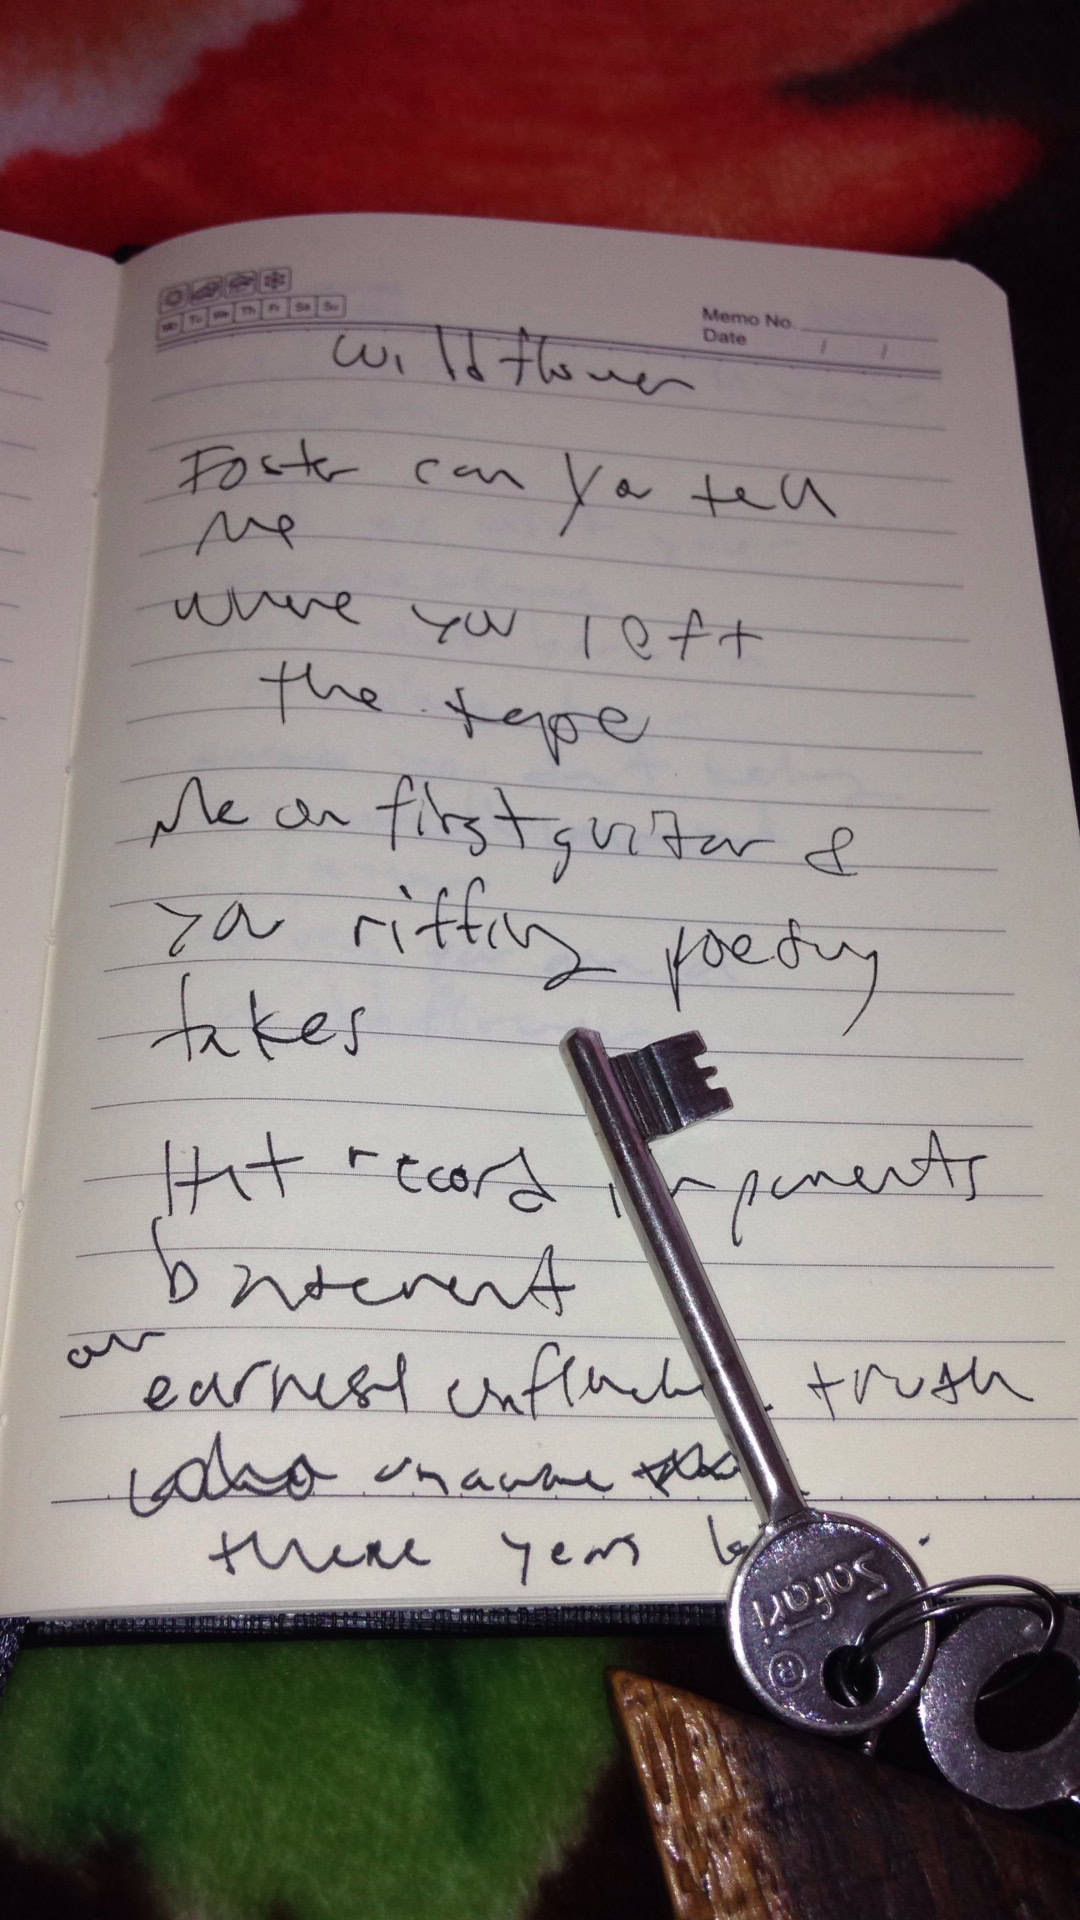 Mo Tu We Th Fr Sa Su
Memo No.
Date / /
Wildflower
Foster can You tell
me
where you left
the tape
Me on first guitar &
you riffing poetry
takes
Hit record
our
earnest truth
unaware
these years
Safari ®